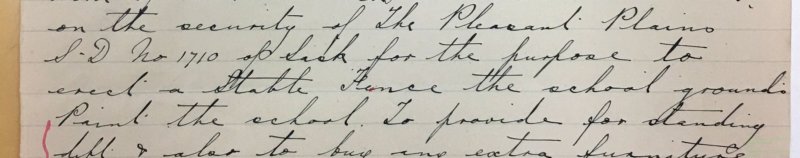 on the security of The Pleasant Plains
S-D No 1710 of Sask for the purpose to
erect a Stable Fence the school grounds
Paint the school. To provide for standing
debt & also to buy any extra furniture